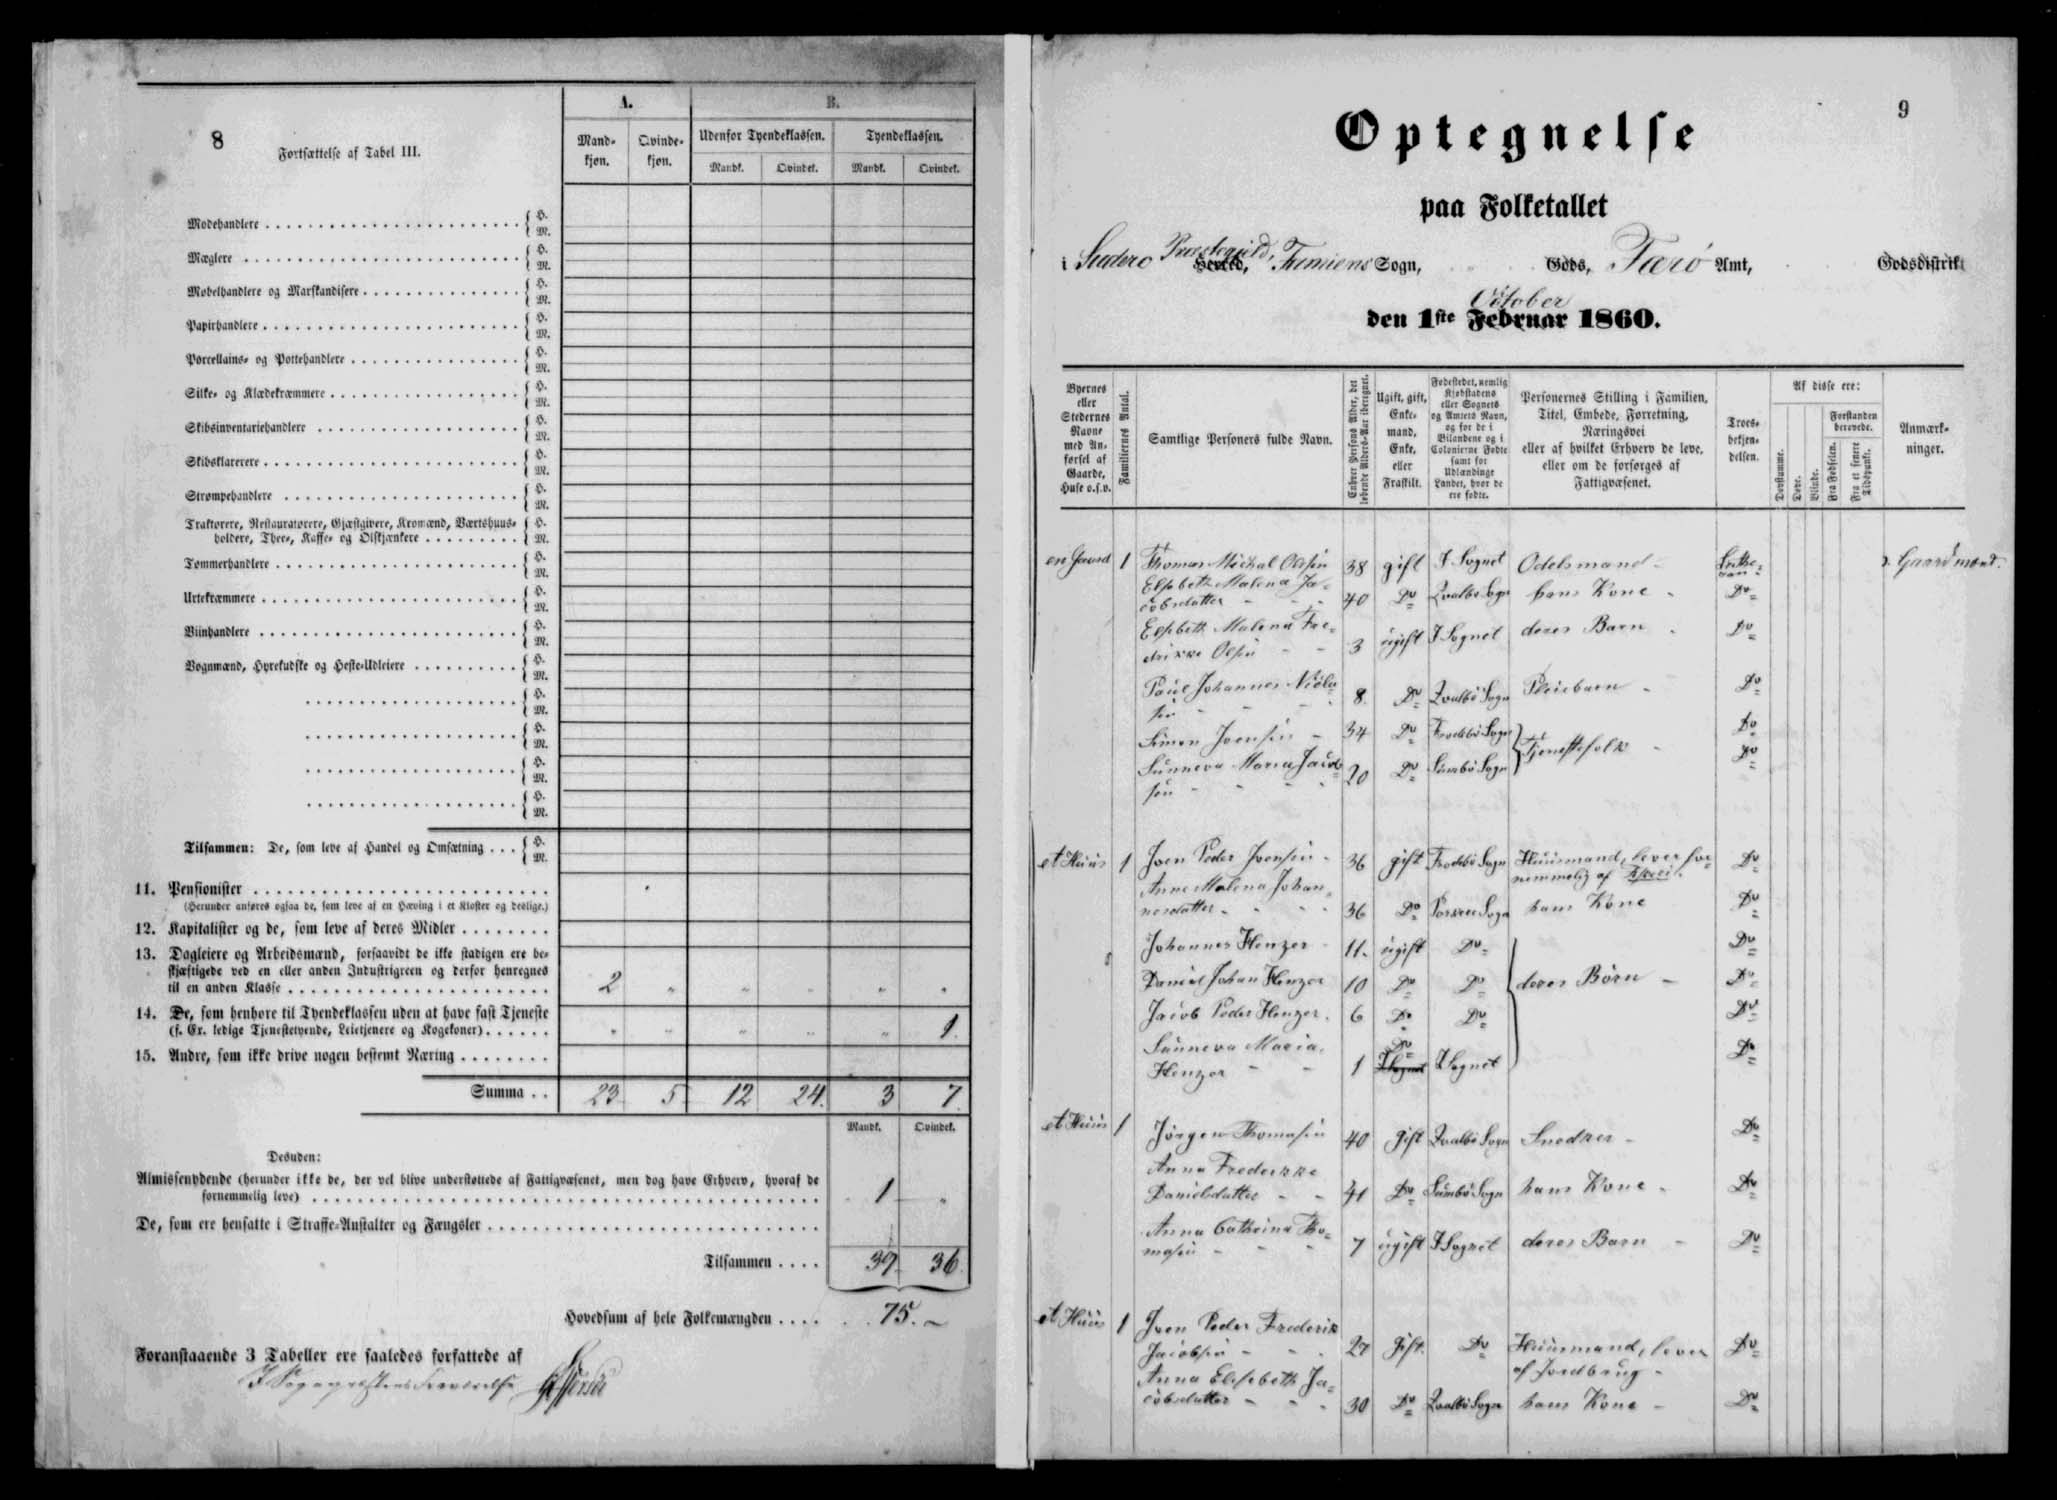 8
Fortsættelse af Tabel III.
A.
B.
Mandkjøn.
Qvindekjøn.
Udenfor Tyendeklassen.
Tyendeklassen.
Mandk.
Qvindek.
Mandk.
Qvindek.
Modehandlere { H. M.
Mæglere { H. M.
Møbelhandlere og Marskandisere { H. M.
Papirhandlere { H. M.
Porcellains- og Pottehandlere { H. M.
Silke- og Klædekræmmere { H. M.
Skibsinventariehandlere { H. M.
Skibsklarerere { H. M.
Strømpehandlere { H. M.
Traktører, Restauratører, Gjæstgivere, Kromænd, Værtshuus-
holdere, Thee-, Kaffe- og Ølskjænkere { H. M.
Tømmerhandlere { H. M.
Urtekræmmere { H. M.
Viinhandlere { H. M.
Vognmænd, Hyrekudske og Heste-Udleiere { H. M.
{ H. M.
{ H. M.
{ H. M.
{ H. M.
Tilsammen: De, som leve af Handel og Omsætning { H. M.
11. Pensionister
(Herunder anføres ogsaa de, som leve af en Hæving i et Kloster og deslige.)
12. Kapitalister og de, som leve af deres Midler
13. Dagleiere og Arbeidsmænd, forsaavidt de ikke stadigen ere be-
skjæftigede ved en eller anden Industrigreen og derfor henregnes
til en anden Klasse 2 " " " " "
14. De, som henhøre til Tyendeklassen uden at have fast Tjeneste
(f. Ex. ledige Tjenestetyende, Leietjenere og Kogekoner) " " " " " 1.
15. Andre, som ikke drive nogen bestemt Næring
Summa 23 5 12 24. 3 7.
Mandk. Qvindek.
Desuden:
Almissenydende (herunder ikke de, der vel blive understøttede af Fattigvæsenet, men dog have Erhverv, hvoraf de
fornemmelig leve) 1 "
De, som ere hensatte i Straffe-Anstalter og Fængsler
Tilsammen 39 36.
Hovedsum af hele Folkemængden 75.
Foranstaaende 3 Tabeller ere saaledes forfattede af
9
Optegnelse
paa Folketallet
i Suderø Præstegield, Herred, Famiens Sogn, Gods, Færø Amt, Godsdistrikt
October
den 1ste Februar 1860.
Byernes eller Stedernes Navne med Anførsel af Gaarde, Huse o.s.v.
Familiernes Antal.
Samtlige Personers fulde Navn.
Enhver Persons Alder, det løbende Alders-Aar iberegnet.
Ugift, gift, Enkemand, Enke, eller Fraskilt.
Fødestedet, nemlig Kjøbstadens eller Sognets og Amtets Navn, og for de i Bilandene og i Colonierne Fødte samt for Udlændinge Landet, hvor de ere fødte.
Personernes Stilling i Familien, Titel, Embede, Forretning, Næringsvei eller af hvilket Erhverv de leve, eller om de forsørges af Fattigvæsenet.
Troesbekjendelsen.
Af disse ere:
Døvstumme.
Døve.
Blinde.
Forstanden berøvede.
Fra Fødselen.
Fra et senere Tidspunkt.
Anmærkninger.
en Gaard 1 Thomas Michal Olesen 38 gift I Sognet Odelsmand Gaardmænd.
Elsebeth Malena Ja-
cobsdatter 40 Do Qvalbø Sogn hans Kone Do
Elsbeth Malena Fre-
drikke Olsen 3 ugift I Sognet deres Barn Do
Paul Johannes Nicla-
sen 8. Do Qvalbø Sogn Pleiebarn Do
Simon Joensen 34 Do Frodebø Sogn Tjenestefolk Do
Sunneva Maria Jacob-
sen 20 Do Sumbø Sogn Do
et Huus 1 Joen Peder Joensen 36 gift Frodebø Sogn Huusmand, lever for-
nemmelig af Fiskeri. Do
Anne Malena Johan-
nesdatter 36 Do Porkeri Sogn hans Kone Do
Johannes Henzer 11. ugift Do deres Børn Do
Daniel Johan Henzer 10 Do Do Do
Jacob Peder Henzer. 6 Do Do Do
Sunneva Maria
Henzer 1 Do I Sognet I Sognet Do
et Huus 1 Jørgen Thomasen 40 gift Qvalbø Sogn Snedker Do
Anna Frederikke
Danielsdatter 41 Do Sumbø Sogn hans Kone Do
Anna Cathrina Tho-
masen 7 ugift I Sognet deres Barn Do
et Huus 1 Joen Peder Frederik
Jacobsen 27 gift. Do Huusmand, lever
af Jordbrug Do
Anna Elsebeth Ja-
cobsdatter 30 Do Qvalbø Sogn hans Kone Do